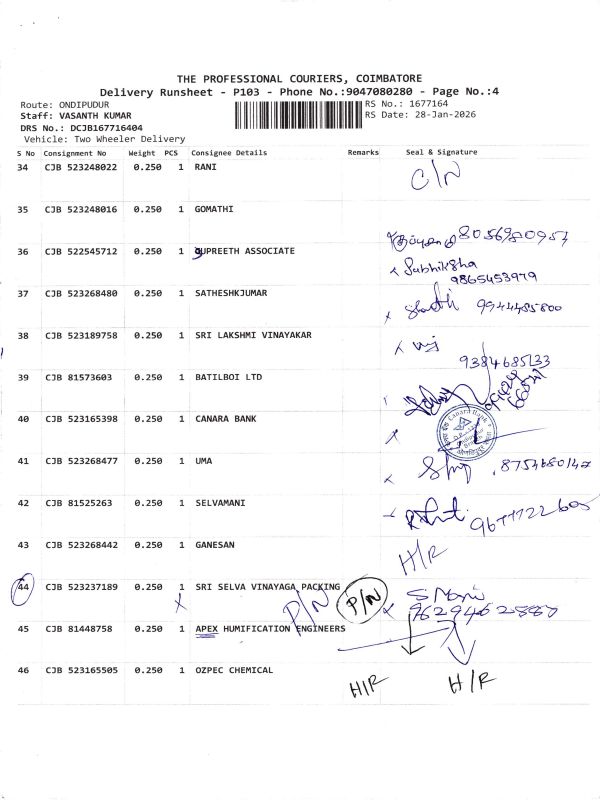 THE PROFESSIONAL COURIERS, COIMBATORE
Delivery Runsheet - P103 - Phone No.:9047080280 - Page No.:4
Route: ONDIPUDUR RS No.: 1677164
Staff: VASANTH KUMAR RS Date: 28-Jan-2026
DRS No.: DCJB167716404
Vehicle: Two Wheeler Delivery
S No Consignment No Weight PCS Consignee Details Remarks Seal & Signature
34 CJB 523248022 0.250 1 RANI C/N
35 CJB 523248016 0.250 1 GOMATHI 8056980957
36 CJB 522545712 0.250 1 SUPREETH ASSOCIATE x Subhiksha
9865453979
37 CJB 523268480 0.250 1 SATHESHKJUMAR x 9944485800
38 CJB 523189758 0.250 1 SRI LAKSHMI VINAYAKAR x
9384685133
39 CJB 81573603 0.250 1 BATILBOI LTD
40 CJB 523165398 0.250 1 CANARA BANK x Canara Bank
41 CJB 523268477 0.250 1 UMA x 8754680147
42 CJB 81525263 0.250 1 SELVAMANI 9677722605
43 CJB 523268442 0.250 1 GANESAN H/R
44 CJB 523237189 0.250 1 SRI SELVA VINAYAGA PACKING P/N S Mani
x P/N x 9629462887
45 CJB 81448758 0.250 1 APEX HUMIFICATION ENGINEERS
46 CJB 523165505 0.250 1 OZPEC CHEMICAL H/R H/R